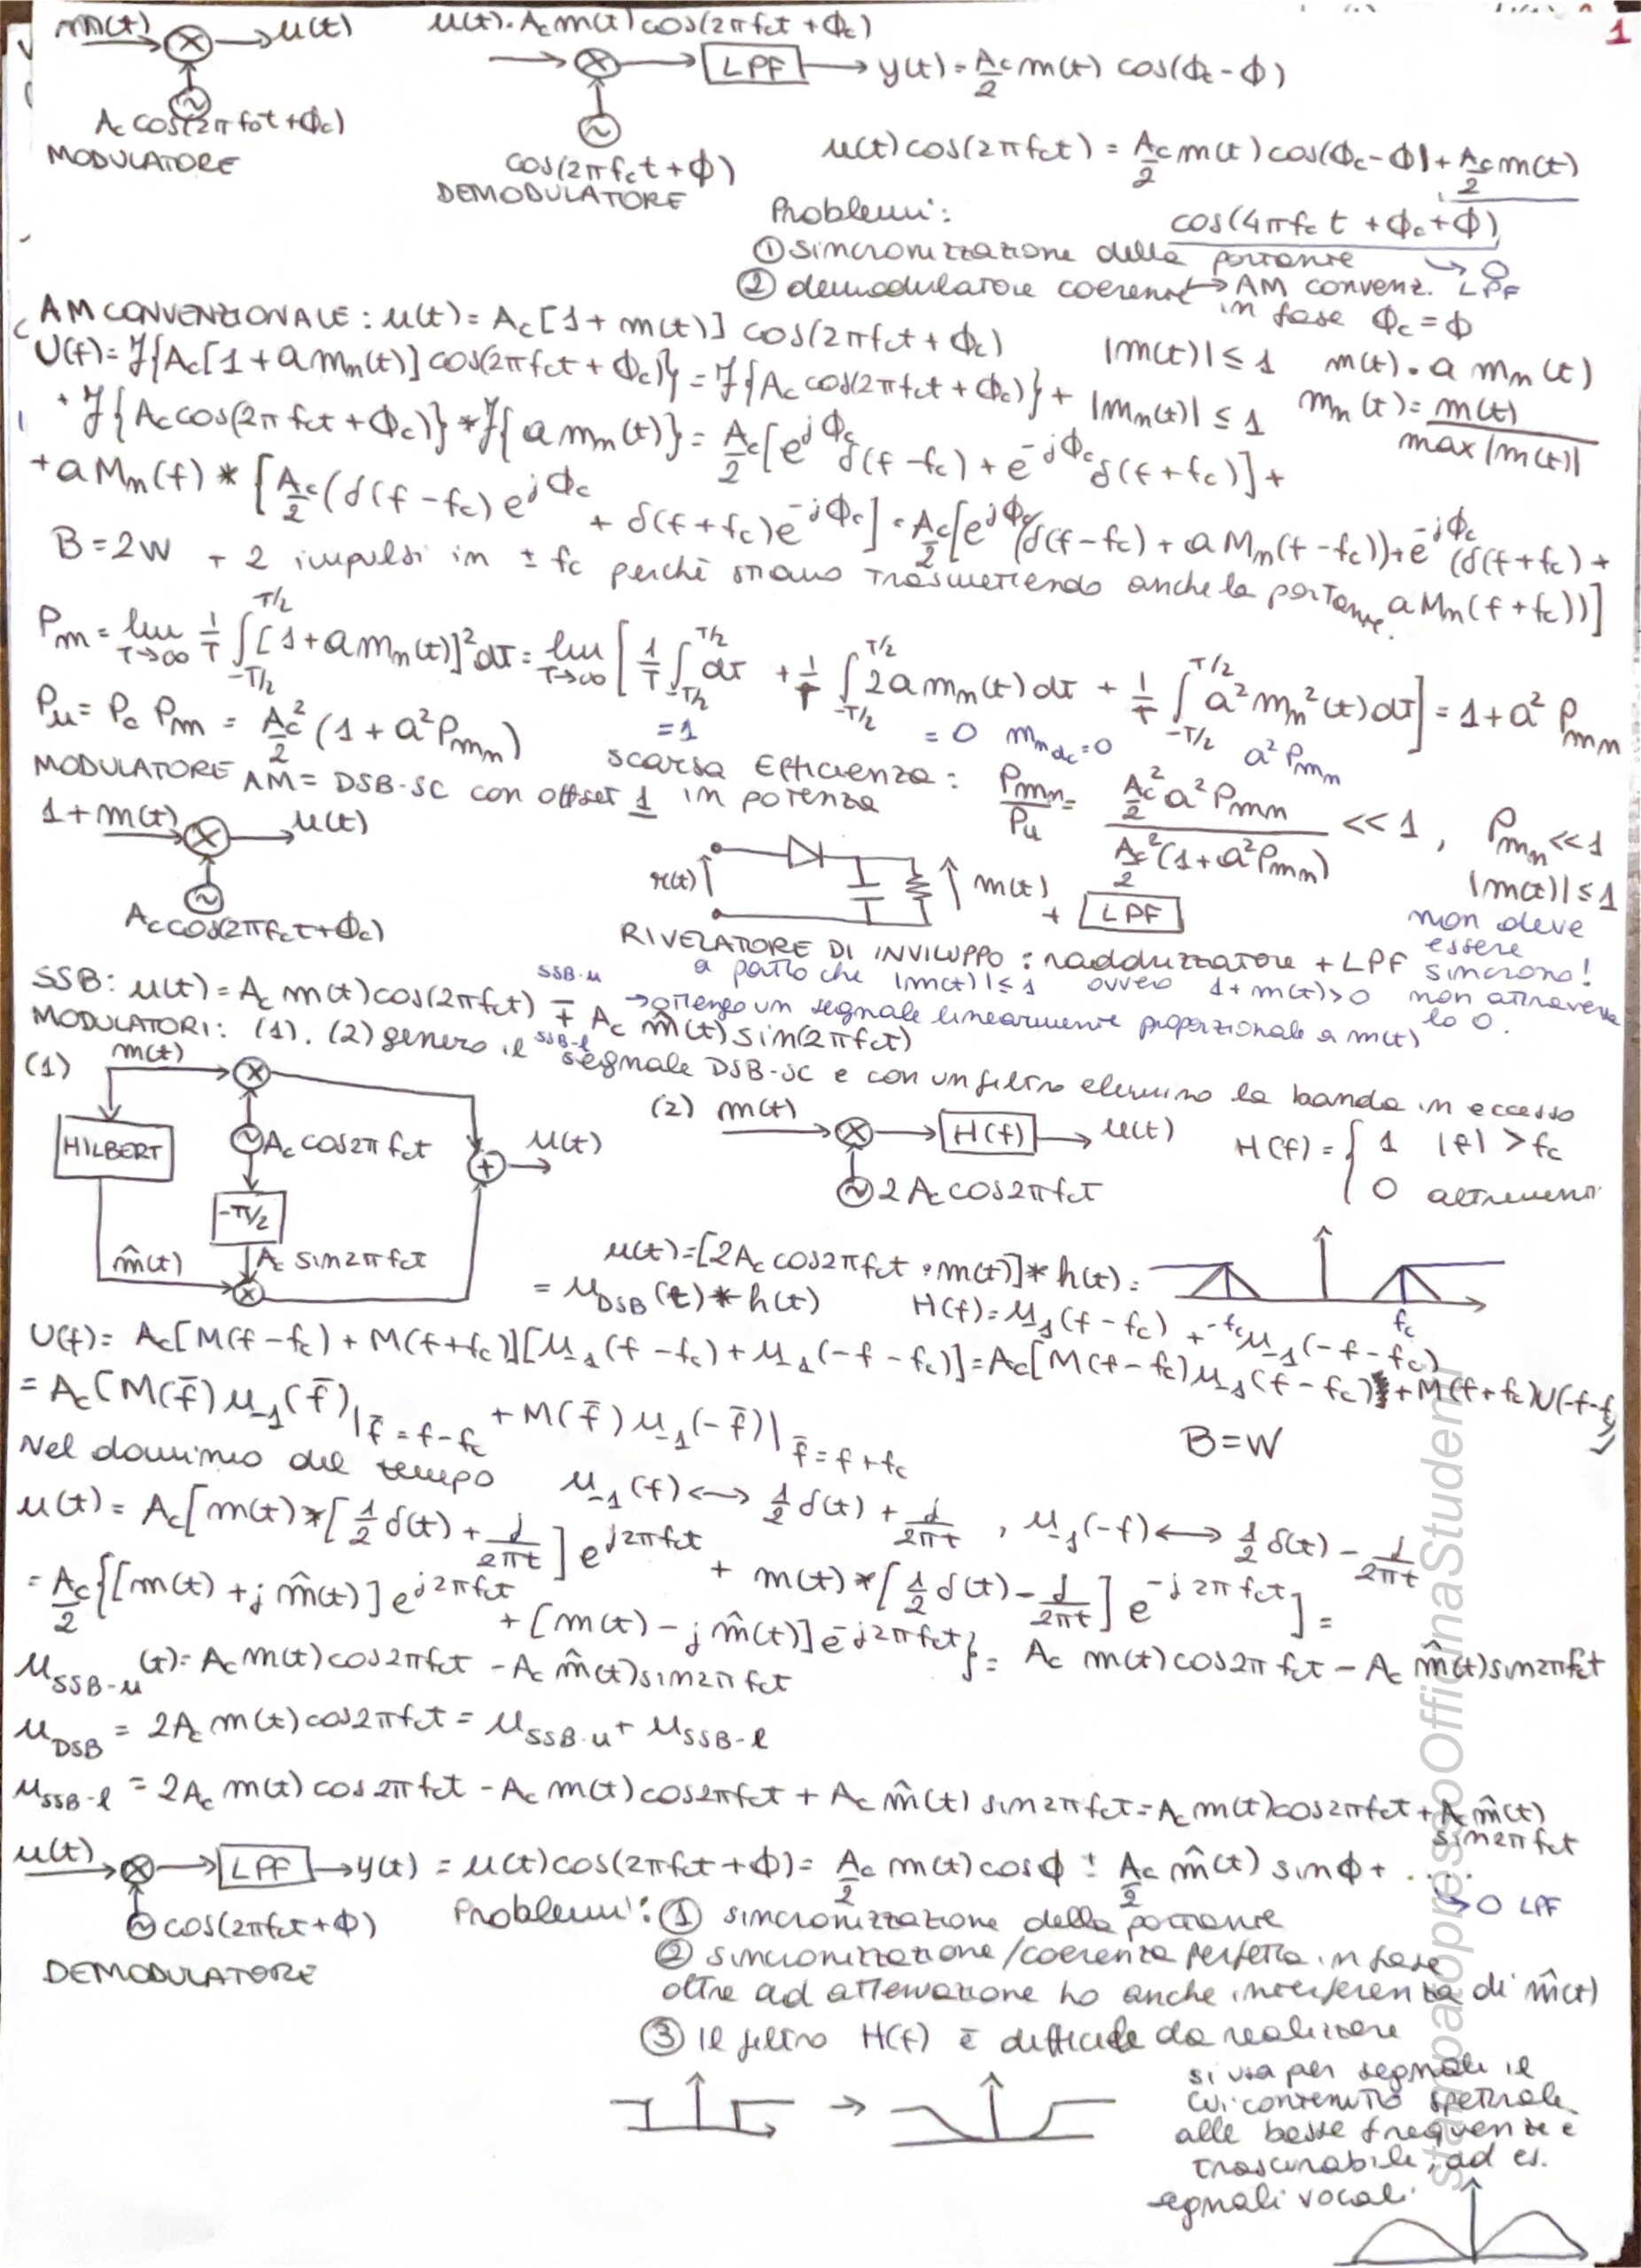 1
m(t) → ⊗ → u(t)
A_c cos(2πf_0t + Φ_c)
MODULATORE
u(t) = A_c m(t) cos(2πf_ct + Φ_c)
→ ⊗ → LPF → y(t) = A_c/2 m(t) cos(Φ_c - Φ)
cos(2πf_ct + Φ)
DEMODULATORE
u(t) cos(2πf_ct) = A_c/2 m(t) cos(Φ_c - Φ) + A_c/2 m(t)
cos(4πf_ct + Φ_c + Φ)
→ 0 LPF
Problemi:
① sincronizzazione della portante
② demodulatore coerente → AM convenz.
in fase Φ_c = Φ
AM CONVENZIONALE: u(t) = A_c[1 + m(t)] cos(2πf_ct + Φ_c)
|m(t)| ≤ 1 m(t) = a m_n(t)
U(f) = F{A_c[1 + a m_n(t)] cos(2πf_ct + Φ_c)} = F{A_c cos(2πf_ct + Φ_c)} +
|m_n(t)| ≤ 1 m_n(t) = m(t)/max|m(t)|
+ F{A_c cos(2πf_ct + Φ_c)} * F{a m_n(t)} = A_c/2 [e^{jΦ_c} δ(f - f_c) + e^{-jΦ_c} δ(f + f_c)] +
+ a M_n(f) * [A_c/2 (δ(f - f_c) e^{jΦ_c} + δ(f + f_c) e^{-jΦ_c}] = A_c/2 [e^{jΦ_c} (δ(f - f_c) + a M_n(f - f_c)) + e^{-jΦ_c} (δ(f + f_c) + a M_n(f + f_c))]
B = 2W + 2 impulsi in ± f_c perchè stiamo trasmettendo anche la portante.
P_m = lim_{T→∞} 1/T ∫_{-T/2}^{T/2} [1 + a m_n(t)]² dt = lim_{T→∞} [1/T ∫_{-T/2}^{T/2} dt + 1/T ∫_{-T/2}^{T/2} 2a m_n(t) dt + 1/T ∫_{-T/2}^{T/2} a² m_n²(t) dt] = 1 + a² P_{m_n}
= 1 = 0 m_{n_dc} = 0 a² P_{m_n}
P_u = P_c P_m = A_c²/2 (1 + a² P_{m_n})
scarsa Efficienza: P_{m_n}/P_u = (A_c²/2 a² P_{m_n}) / (A_c²/2 (1 + a² P_{m_n})) << 1, P_{m_n} << 1
in potenza
|m(t)| ≤ 1
MODULATORE AM = DSB-SC con offset 1
1 + m(t) → ⊗ → u(t)
A_c cos(2πf_ct + Φ_c)
r(t) m(t) + LPF
RIVELATORE DI INVILUPPO: raddrizzatore + LPF
non deve essere sincrono!
a patto che |m(t)| ≤ 1 ovvero 1 + m(t) > 0 non attraversa lo 0.
→ ottengo un segnale linearmente proporzionale a m(t)
SSB: u(t) = A_c m(t) cos(2πf_ct) ∓ A_c m̂(t) sin(2πf_ct)
SSB-u
SSB-l
MODULATORI: (1). (2) genero il segnale DSB-SC e con un filtro elimino la banda in eccesso
(1) m(t)
HILBERT
A_c cos2πf_ct
-π/2
A_c sin2πf_ct
m̂(t)
u(t)
(2) m(t) → ⊗ → H(f) → u(t)
2A_c cos2πf_ct
H(f) = { 1 |f| > f_c
0 altrimenti
u(t) = [2A_c cos2πf_ct · m(t)] * h(t) =
= u_DSB(t) * h(t)
-f_c f_c
H(f) = u_{-1}(f - f_c) + u_{-1}(-f - f_c)
U(f) = A_c[M(f - f_c) + M(f + f_c)][u_{-1}(f - f_c) + u_{-1}(-f - f_c)] = A_c[M(f - f_c) u_{-1}(f - f_c) + M(f + f_c) U(-f - f_c)]
= A_c (M(f̄) u_{-1}(f̄)|_{f̄ = f - f_c} + M(f̄) u_{-1}(-f̄)|_{f̄ = f + f_c}
B = W
Nel dominio del tempo u_{-1}(f) ↔ 1/2 δ(t) + j/2πt , u_{-1}(-f) ↔ 1/2 δ(t) - j/2πt
u(t) = A_c[m(t) * [1/2 δ(t) + j/2πt] e^{j2πf_ct} + m(t) * [1/2 δ(t) - j/2πt] e^{-j2πf_ct}] =
= A_c/2 {[m(t) + j m̂(t)] e^{j2πf_ct} + [m(t) - j m̂(t)] e^{-j2πf_ct}} = A_c m(t) cos2πf_ct - A_c m̂(t) sin2πf_ct
u_{SSB-u}(t) = A_c m(t) cos2πf_ct - A_c m̂(t) sin2πf_ct
u_DSB = 2A_c m(t) cos2πf_ct = u_{SSB-u} + u_{SSB-l}
u_{SSB-l} = 2A_c m(t) cos2πf_ct - A_c m(t) cos2πf_ct + A_c m̂(t) sin2πf_ct = A_c m(t) cos2πf_ct + A_c m̂(t) sin2πf_ct
u(t) → ⊗ → LPF → y(t) = u(t) cos(2πf_ct + Φ) = A_c/2 m(t) cosΦ ± A_c/2 m̂(t) sinΦ + ....
→ 0 LPF
cos(2πf_ct + Φ)
DEMODULATORE
Problemi: ① sincronizzazione della portante
② sincronizzazione/coerenza perfetta in fase
oltre ad attenuazione ho anche interferenza di m̂(t)
③ Il filtro H(f) è difficile da realizzare
si usa per segnali il
cui contenuto spettrale
alle basse frequenze è
trascurabile, ad es.
segnali vocali
stampatopressoOfficinaStudenti